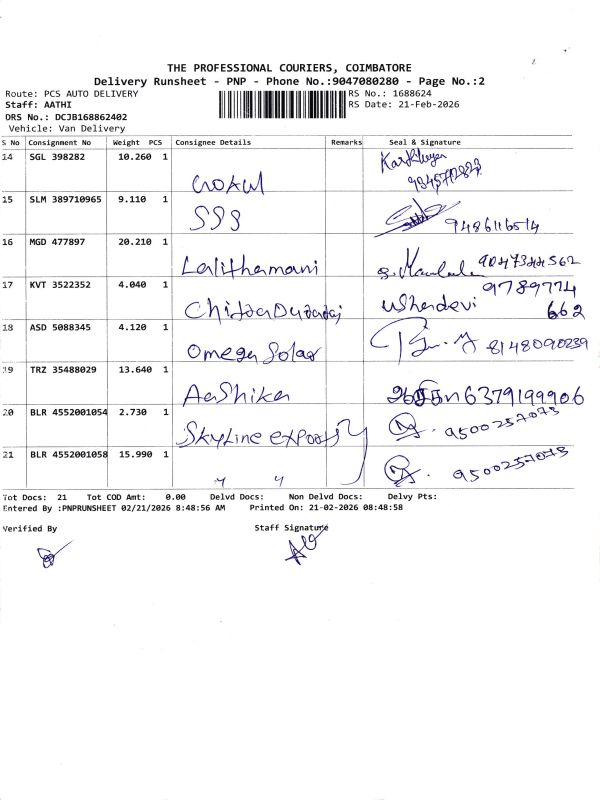 THE PROFESSIONAL COURIERS, COIMBATORE
Delivery Runsheet - PNP - Phone No.:9047080280 - Page No.:2
Route: PCS AUTO DELIVERY RS No.: 1688624
Staff: AATHI RS Date: 21-Feb-2026
DRS No.: DCJB168862402
Vehicle: Van Delivery
S No Consignment No Weight PCS Consignee Details Remarks Seal & Signature
14 SGL 398282 10.260 1 Gokul
15 SLM 389710965 9.110 1 SSS 9486116514
16 MGD 477897 20.210 1 Lalithamani
17 KVT 3522352 4.040 1 Ushadevi 9789774
662
18 ASD 5088345 4.120 1 Omega Solar 8148090239
19 TRZ 35488029 13.640 1 Aashika 6379199906
20 BLR 4552001054 2.730 1 Skyline exports 9500257073
21 BLR 4552001058 15.990 1 " " 9500257073
Tot Docs: 21 Tot COD Amt: 0.00 Delvd Docs: Non Delvd Docs: Delvy Pts:
Entered By :PNPRUNSHEET 02/21/2026 8:48:56 AM Printed On: 21-02-2026 08:48:58
Verified By Staff Signature